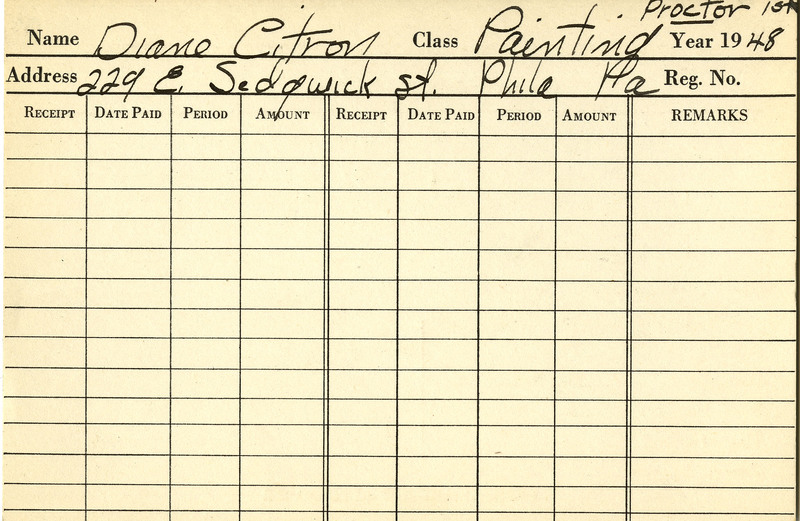 Proctor 1st
Name Diane Citron Class Painting Year 1948
Address 229 E. Sedgwick st. Phila Pa Reg. No.
RECEIPT DATE PAID PERIOD AMOUNT RECEIPT DATE PAID PERIOD AMOUNT REMARKS